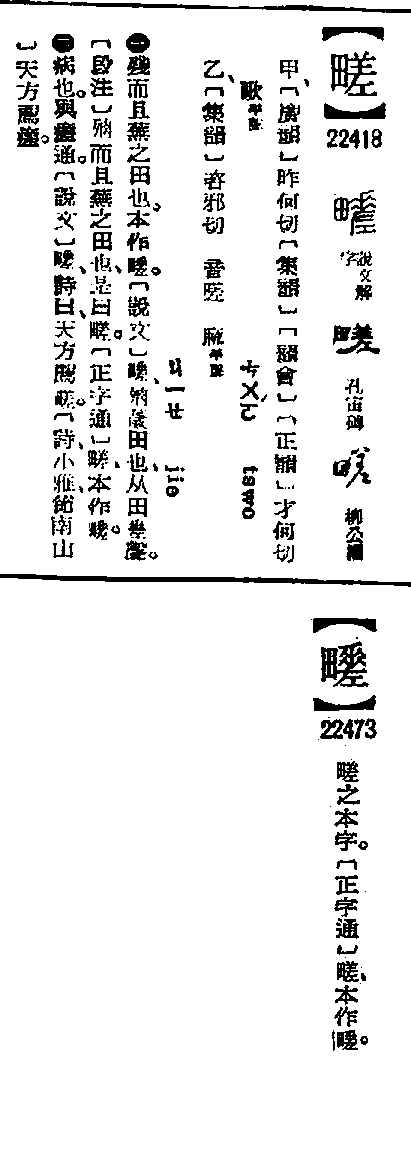 【畻】
22418
說文解字
孔宙碑
柳公權
甲、〔廣韻〕昨何切〔集韻〕〔韻會〕〔正韻〕才何切
歌平聲
ㄘㄨㄛˊ tswo
乙、〔集韻〕咨邪切 音嗟 麻平聲
ㄐㄧㄝ jie
㊀殘而且蕪之田也。本作
〔說文〕
殘薉田也、从田
聲。
〔段注〕殘而且蕪之田也、是曰
。〔正字通〕
本作
㊁病也。與瘥通。〔說文〕
詩曰、天方薦
。〔詩、小雅、節南山
〕天方薦瘥。
22473
之本字。〔正字通〕
、本作